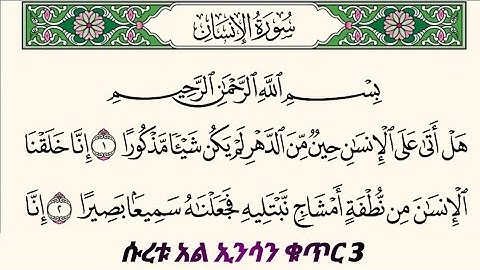 سُورَةُ الإِنسَانِ
بِسْمِ اللَّهِ الرَّحْمَٰنِ الرَّحِيمِ
هَلْ أَتَىٰ عَلَى الْإِنسَانِ حِينٌ مِّنَ الدَّهْرِ لَمْ يَكُن شَيْئًا مَّذْكُورًا ١ إِنَّا خَلَقْنَا
الْإِنسَانَ مِن نُّطْفَةٍ أَمْشَاجٍ نَّبْتَلِيهِ فَجَعَلْنَاهُ سَمِيعًا بَصِيرًا ٢ إِنَّا
ሱረቱ አል ኢንሳን ቁጥር 3